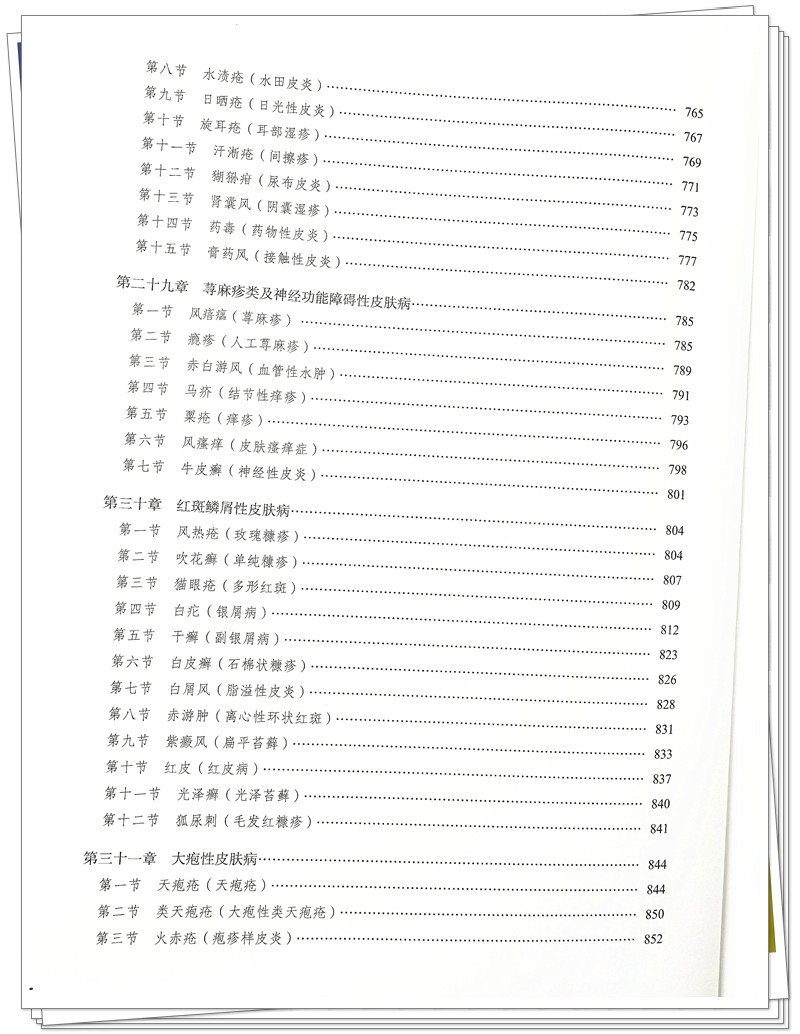 第八节 水渍疮（水田皮炎）……765
第九节 日晒疮（日光性皮炎）……767
第十节 旋耳疮（耳部湿疹）……769
第十一节 汗淅疮（间擦疹）……771
第十二节 猢狲疳（尿布皮炎）……773
第十三节 肾囊风（阴囊湿疹）……775
第十四节 药毒（药物性皮炎）……777
第十五节 膏药风（接触性皮炎）……782
第二十九章 荨麻疹类及神经功能障碍性皮肤病……785
第一节 风瘩㾦（荨麻疹）……785
第二节 瘾疹（人工荨麻疹）……789
第三节 赤白游风（血管性水肿）……791
第四节 马疥（结节性痒疹）……793
第五节 粟疮（痒疹）……796
第六节 风瘙痒（皮肤瘙痒症）……798
第七节 牛皮癣（神经性皮炎）……801
第三十章 红斑鳞屑性皮肤病……804
第一节 风热疮（玫瑰糠疹）……804
第二节 吹花癣（单纯糠疹）……807
第三节 猫眼疮（多形红斑）……809
第四节 白疕（银屑病）……812
第五节 干癣（副银屑病）……823
第六节 白皮癣（石棉状糠疹）……826
第七节 白屑风（脂溢性皮炎）……828
第八节 赤游肿（离心性环状红斑）……831
第九节 紫癜风（扁平苔藓）……833
第十节 红皮（红皮病）……837
第十一节 光泽癣（光泽苔藓）……840
第十二节 狐尿刺（毛发红糠疹）……841
第三十一章 大疱性皮肤病……844
第一节 天疱疮（天疱疮）……844
第二节 类天疱疮（大疱性类天疱疮）……850
第三节 火赤疮（疱疹样皮炎）……852